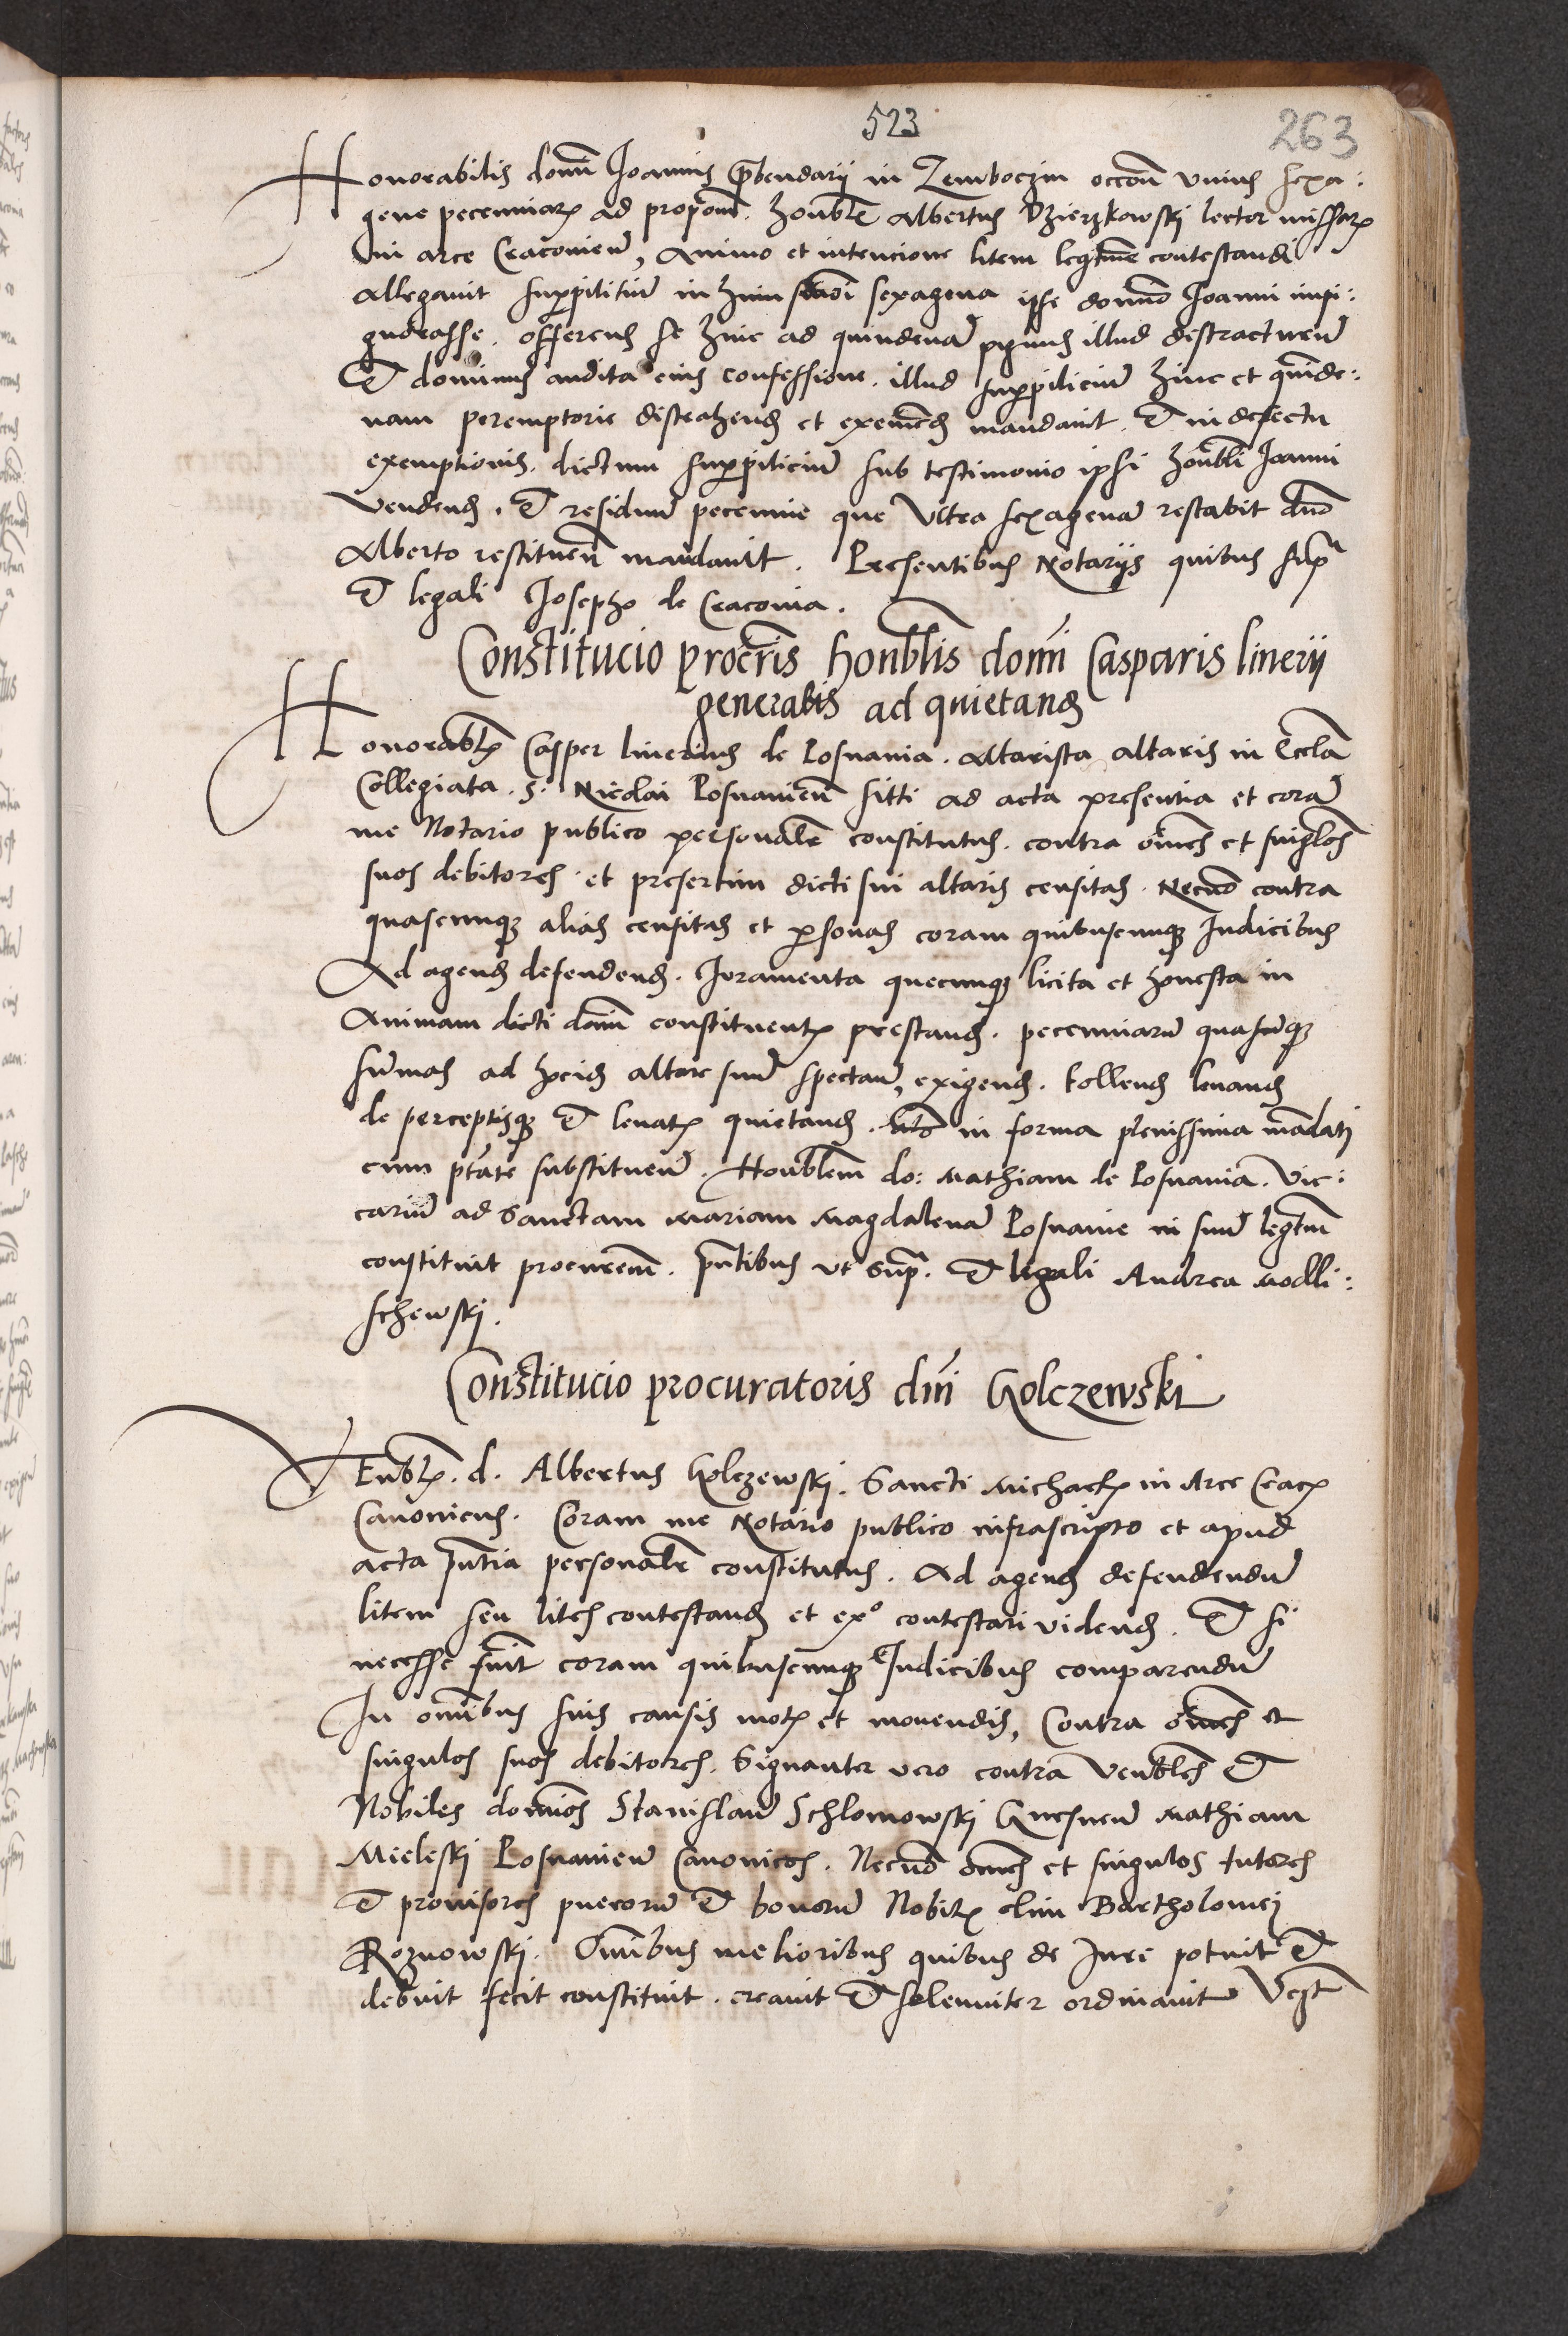 523
263
Honorabilis domi Joannis p̄bendarii in Zemboczin occōn̄ vnius sexa:
gene pecenniarꝫ ad propōm. honbłē Albertus Dzierzkowski lector missarꝫ
in arce Cracouień, Animo et intencione litem legitīme contestandi
Allegauit suppiliciū in huiusmodi sexagena ipse domino Joanni inpi:
gnorasse. offerens se hinc ad quindenā pignus illud distracturū
Et dominus audita eius confessione. illud suppiliciū hinc et quinde:
nam peremptorie distrahend et eximend mandauit. Et in defectu
exemptionis. dictum suppiliciū sub testimonio ipsi honbli Joanni
vendend. Et residuū pecennie que vltra sexagenā restabit dno
Alberto restituen̄ mandauit. Presentibus Notarijs quibus supra
Et legali Josepho de Cracouia.
Constitucio procr̄is honblis domi Casparis linerii
generalis ad quietand
Honorablꝫ Casper linerius de Posnania. Altarista altaris in Eccla
Collegiata. S. Nicolai Posnanień sitti ad acta presentia et corā
me Notario publico personalē constitutus. contra oēs et singlos
suos debitores. et presertim dicti sui altaris censitas. Necno contra
quascunqꝫ alias censitas et psonas coram quibuscunqꝫ Judicibus
Ad agend defendend. Joramenta quecunqꝫ licita et honesta in
Animam dicti domi constituentꝫ prestand. pecenniarū quascūqꝫ
sūmas ad altare suū spectań, exigend. tollend leuand
de perceptisqꝫ Et leuatꝫ quietand. in forma plenissima mādati
cum ptāte substituen̄. Honblem do: Mathiam de Posnania. Vic:
cariū ad Sanctam Mariam Magdalenā Posnanie in suū legtm̄
constituit procurēm. pn̄tibus vt sup̄. Et legali Andrea Modli:
schewskj.
Constitucio procuratoris dn̄i Golczewski
Venblꝫ. d. Albertus Golczewskj. Sancti Michaelꝫ in Arce Cracꝫ
Canonicus. Coram me Notario publico infrascripto et apud
acta pn̄tia personalē constitutus. Ad agend defendendū
litem seu lites contestand et exº contestari vidend. Et si
necesse fūit coram quibuscunqꝫ Judicibus comparendū
In omībus suis causis motꝫ et mouendis, Contra oēs et
singulos suos debitores. Signanter vero contra Venbles Et
Nobiles domīos Stanislaū Schlomowskj Gnesneń Mathiam
Mieleskj Posnanień Canonicos. Necnō omēs et singulos tutores
Et prouisores puerorū Et bonorū Nobilꝫ olim Bartholomej
Roznowskj. Omībus melioribus quibus de Jure potuit Et
debuit fecit constituit. creauit Et solenniter ordinauit